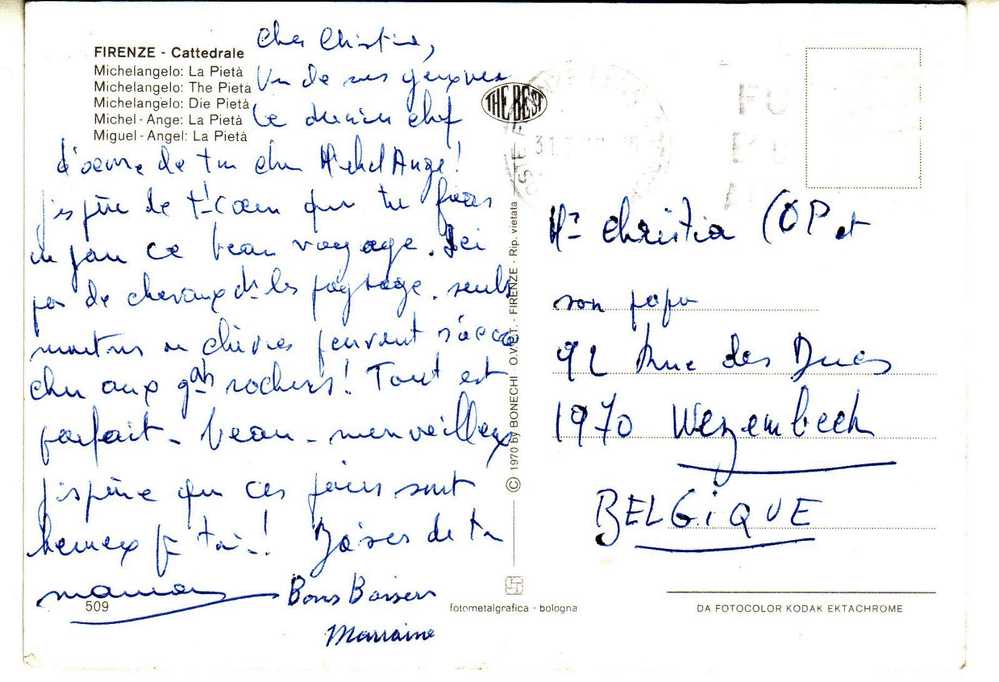 FIRENZE - Cattedrale
Michelangelo: La Pietà
Michelangelo: The Pieta
Michelangelo: Die Pietà
Michel-Ange: La Pietà
Miguel-Angel: La Pietà
Cher Christia,
Un de ses
Le dernier chef
d'oeuvre de ton cher Michel Ange!
J'espère de tt coeur que tu feras
un jour ce beau voyage. Ici
pas de chevaux ds les paysage. seuls
moutons ou chèvres peuvent s'acco
cher aux gds rochers! Tout est
parfait - beau - merveilleux
J'espère que ces jours sont
heureux pr toi! Baisers de ta
maman
Bons Baisers
Marraine
509
THE BEST
© 1970 by BONECHI O.V.E.T. - FIRENZE - Rip. vietata
fotometalgrafica - bologna
Mr Christia COP et
son papa
92 Rue des Ducs
1970 Wezembeek
BELGIQUE
DA FOTOCOLOR KODAK EKTACHROME